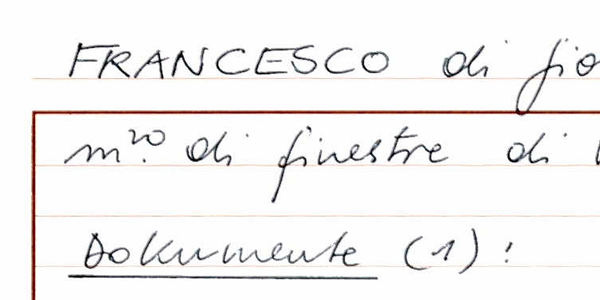 FRANCESCO di gio
m.ro di finestre di
Dokumente (1):